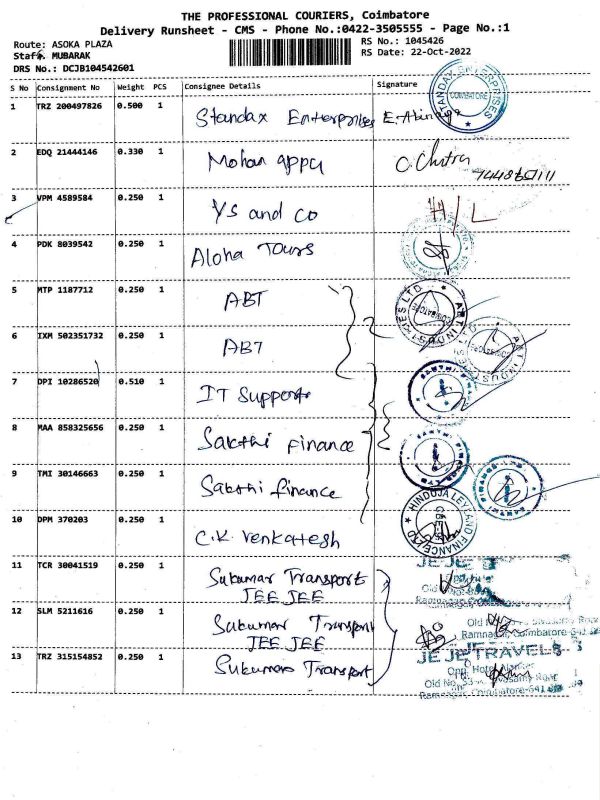 THE PROFESSIONAL COURIERS, Coimbatore
Delivery Runsheet - CMS - Phone No.:0422-3505555 - Page No.:1
Route: ASOKA PLAZA RS No.: 1045426
Staff: MUBARAK RS Date: 22-Oct-2022
DRS No.: DCJB104542601
S No Consignment No Weight PCS Consignee Details Signature
1 TRZ 200497826 0.500 1 Standax Enterprises E. Abinaya
STANDAY ENTERPRISES COIMBATORE
2 EDQ 21444146 0.330 1 Mohan appu C. Chitra
3 VPM 4589584 0.250 1 YS and Co H/L
4 PDK 8039542 0.250 1 Aloha Tours
5 MTP 1187712 0.250 1 ABT
ABT INDUSTRIES LTD. COIMBATORE
6 IXM 502351732 0.250 1 ABT
ABT INDUS
7 DPI 10286520 0.510 1 IT Support
8 MAA 858325656 0.250 1 Sakthi Finance
9 TMI 30146663 0.250 1 Sakthi finance
10 DPM 370203 0.250 1 C.K. Venkatesh
HINDUJA LEYLAND FINANCE LTD CBE
11 TCR 30041519 0.250 1 Sukumar Transport
JEE JEE
JEJE
12 SLM 5211616 0.250 1 Sukumar Transport
JEE JEE
Ramnagar, Coimbatore-641
13 TRZ 315154852 0.250 1 Sukumar Transport
JEJE TRAVELS
Opp. Hotel
Old No.
Ramnagar, Coimbatore-641